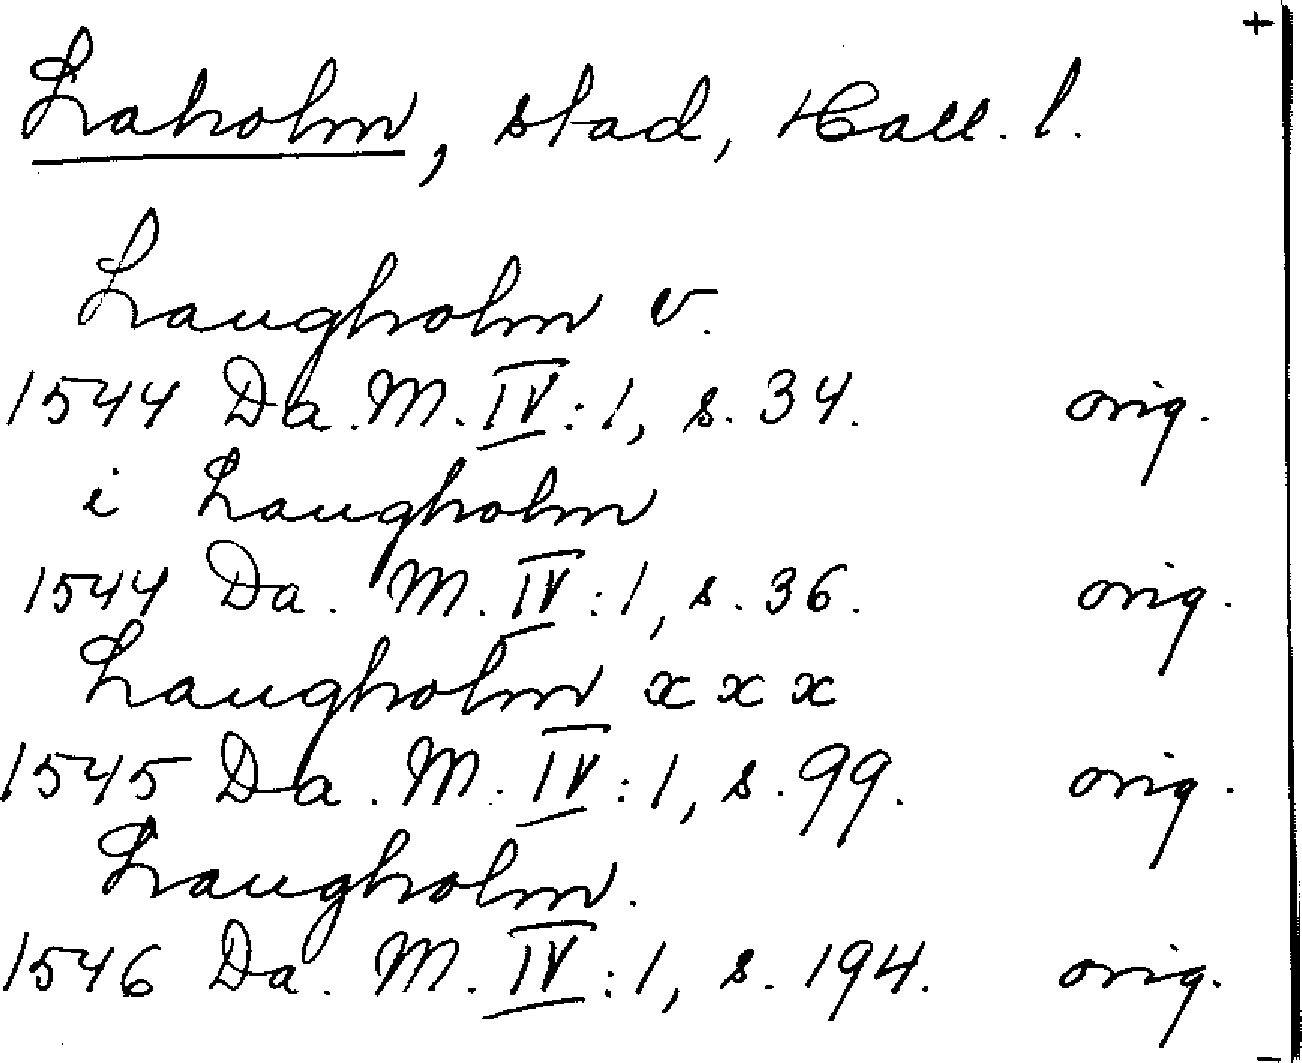 +
Laholm, stad, Hall. l.
Laugholm v.
1544 Da. M. IV:1, s. 34. orig.
i Laugholm
1544 Da. M. IV:1, s. 36. orig.
Laugholm x x x
1545 Da. M. IV:1, s. 99. orig.
Laugholm.
1546 Da. M. IV:1, s. 194. orig.